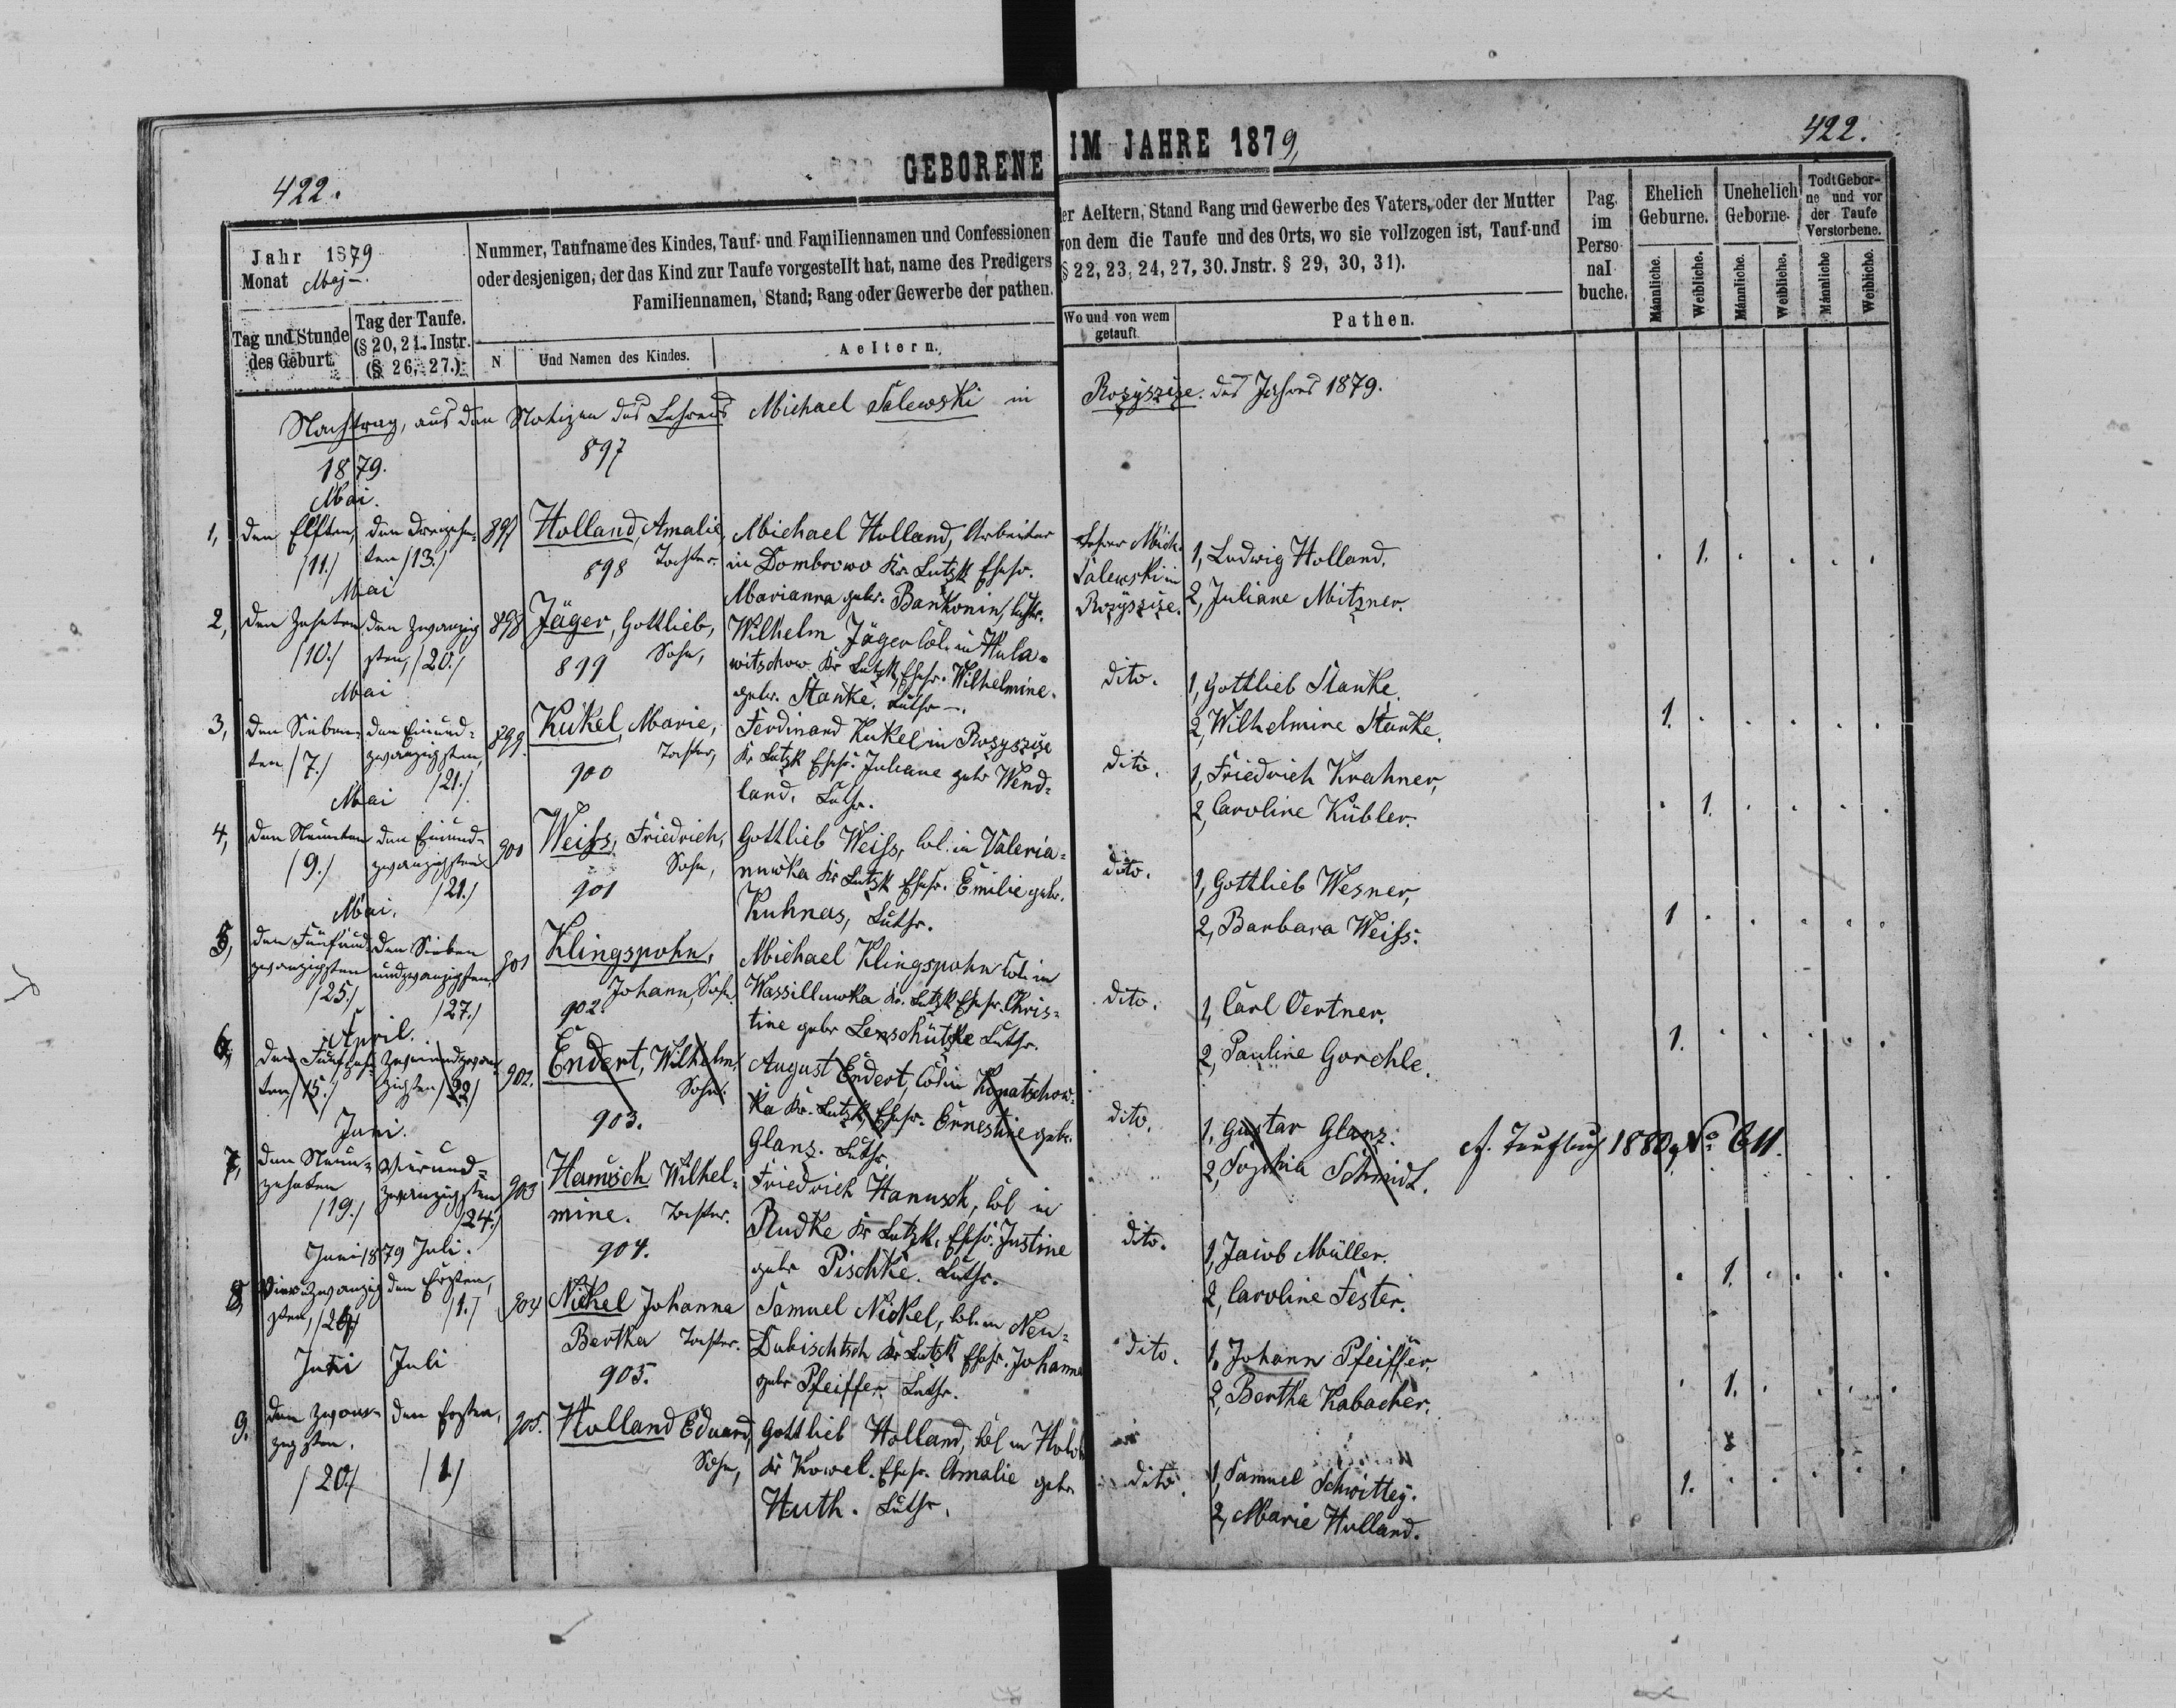 422.
GEBORENE IM JAHRE 1879,
422.
Jahr 1879
Monat Maj
Nummer, Taufname des Kindes, Tauf- und Familiennamen und Confessionen
oder desjenigen, der das Kind zur Taufe vorgestellt hat, name des Predigers
Familiennamen, Stand; Rang oder Gewerbe der pathen.
er Aeltern, Stand Rang und Gewerbe des Vaters, oder der Mutter
von dem die Taufe und des Orts, wo sie vollzogen ist, Tauf-und
§ 22, 23, 24, 27, 30. Jnstr. § 29, 30, 31).
Pag.
im
Perso
nal
buche.
Ehelich
Geburne.
Unehelich
Geborne.
Todt Gebor-
ne und vor
der Taufe
Verstorbene.
Männliche.
Weibliche.
Männliche.
Weibliche.
Männliche
Weibliche.
Tag und Stunde
des Geburt.
Tag der Taufe.
(§ 20, 21. Instr.
(§ 26, 27.)
N
Und Namen des Kindes.
Aeltern.
Wo und von wem
getauft
Pathen.
Nachtrag, aus den Notizen des Lehrers Michael Salewski in Rozyszcze. des Jahres 1879.
897
1879.
Mai.
1, den Elften, den dreizehn- 897 Holland, Amalie, Michael Holland, Arbeiter
/11./ ten /13./ Tochter. in Dombrowo Kr. Lutzk Ehefr.
Marianna gebr. Bankonin, luthr.
Lehrer Mich.
Salewski in
Rozyszcze.
1, Ludwig Holland. 1.
2, Juliane Mitzner.
898
Mai
2, den Zehnten den Zwanzig 898 Jäger, Gottlieb, Wilhelm Jäger Col. in Hula-
/10./ sten, /20./ Sohn, witschow Kr Lutzk, Ehefr. Wilhelmine.
gebr. Stanke. Luthr.
dito. 1, Gottlieb Stanke.
2, Wilhelmine Stanke. 1.
899
Mai
3, den Sieben- den Einund- 899. Kukel, Marie, Ferdinand Kukel in Rozyszcze
ten /7./ zwanzigsten, Tochter, Kr Lutzk Ehefr. Juliane gebr Wend-
/21./ land. Luthr.
dito. 1, Friedrich Krahner,
2, Caroline Kübler. 1.
900
Mai
4, den Neunten den Einund- 900 Weiss, Friedrich, Gottlieb Weiss, Col. in Valeria-
/9./ zwanzigsten Sohn, nuwka Kr Lutzk Ehefr. Emilie gebr.
/21./ Kuhnas, Luthr.
dito. 1, Gottlieb Wesner,
2, Barbara Weiss. 1
901
Mai.
5, den Fünfund- den Sieben 901 Klingspohn, Michael Klingspohn Col. in
zwanzigsten undzwanzigsten Johann, Sohn. Wassilluwka Kr. Lutzk Ehefr. Chris-
/25./ /27./ tine gebr Lenschützke Luthr.
dito. 1, Carl Oertner.
2, Pauline Gorchle. 1.
902.
April.
6, den Funfzehn- Zweiundzwan- 902. Endert, Wilhelm, August Endert, Col in Kopatschow-
ten /15./ zigsten /22/ Sohn. ka Kr. Lutzk Ehefr. Ernestine gebr.
Glanz. Luthr.
dito. 1, Gustav Glanz.
2, Sophia Schmidt. cf. Taufbuch 1880, No 611.
903.
Juni.
7, den Neun- Vierund- 903 Hanusch Wilhel- Friedrich Hanusch, Col in
zehnten zwanzigsten mine. Tochter. Rudke Kr Lutzk, Ehefr. Justine
/19./ /24./ gebr Pischke. Luthr.
dito. 1, Jacob Müller.
2, Caroline Fester. 1.
904.
Juni 1879 Juli.
8, Vier Zwanzig den Ersten, 904 Nickel Johanna Samuel Nickel, Col. in Neu-
sten, /24/ /1./ Bertha Tochter. Dubischtsch Kr Lutzk Ehefr. Johanna
gebr Pfeiffer. Luthr.
dito. 1, Johann Pfeiffer.
2, Bertha Kabacher. 1.
905.
Juni Juli
9. den Zwan- den Ersten, 905. Holland Eduard, Gottlieb Holland, Col in
zigsten. Sohn, Kr Kowel. Ehefr. Amalie gebr
/20./ /1/ Huth. Luthr.
dito. 1, Samuel Schwittey. 1.
2, Marie Holland.